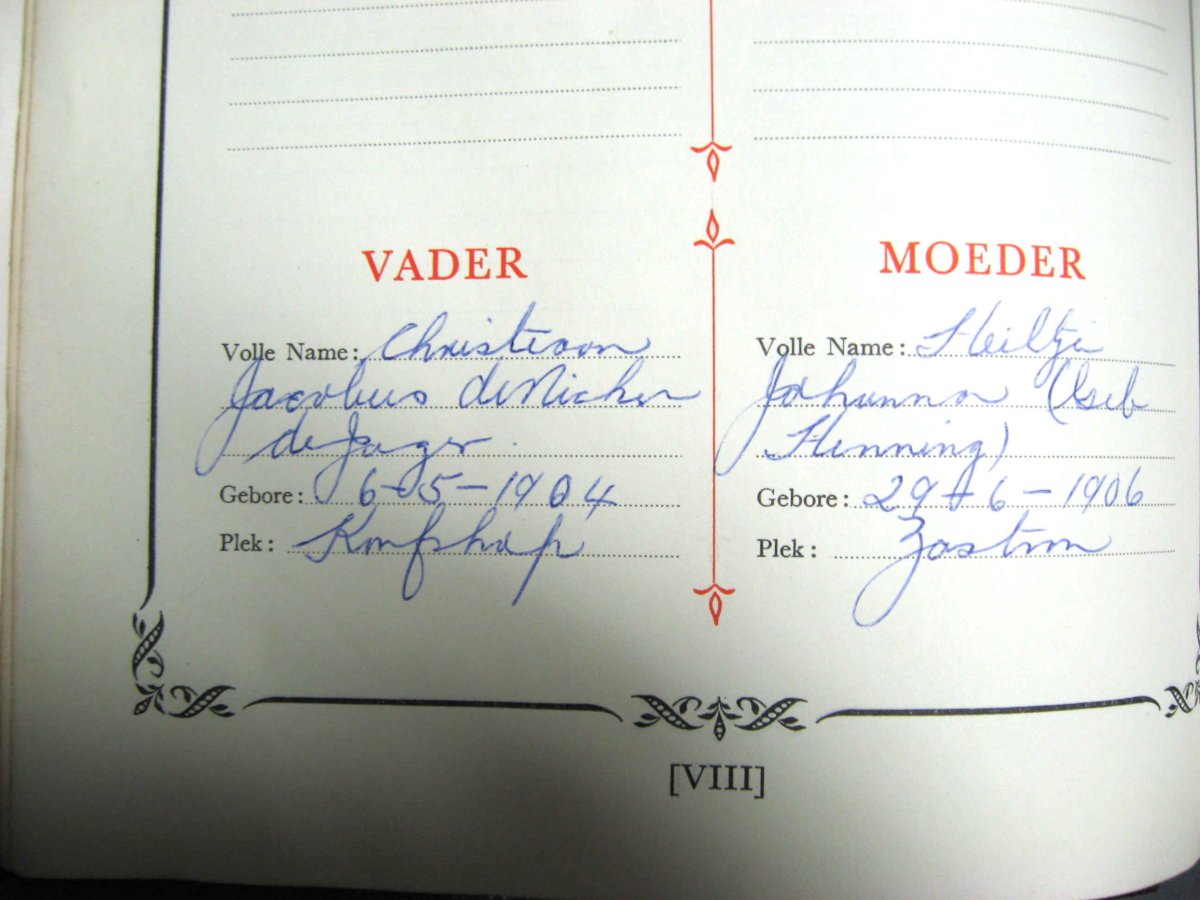 VADER
Volle Name: Christiaan
Jacobus
de Jager.
Gebore: 6-5-1904
Plek:
MOEDER
Volle Name: Heiltje
Johanna (Geb
Henning)
Gebore: 29-6-1906
Plek: Zastron
[VIII]